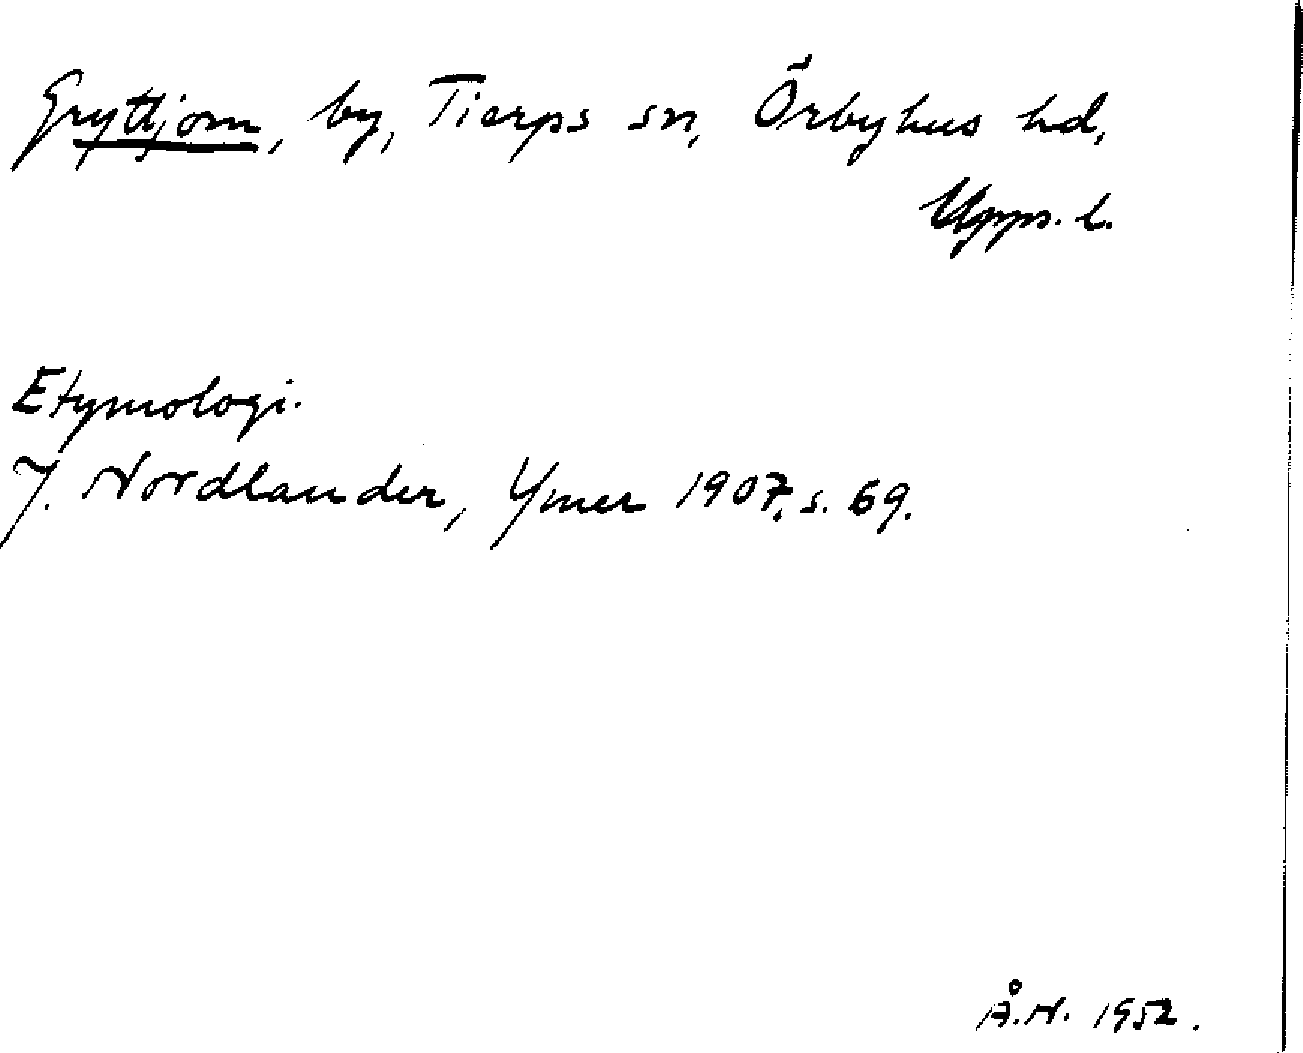 Gryttjom, by, Tierps sn, Örbyhus hd,
Upps. l.
Etymologi.
J. Nordlander, Ymer 1907, s. 69.
Å.N. 1952.